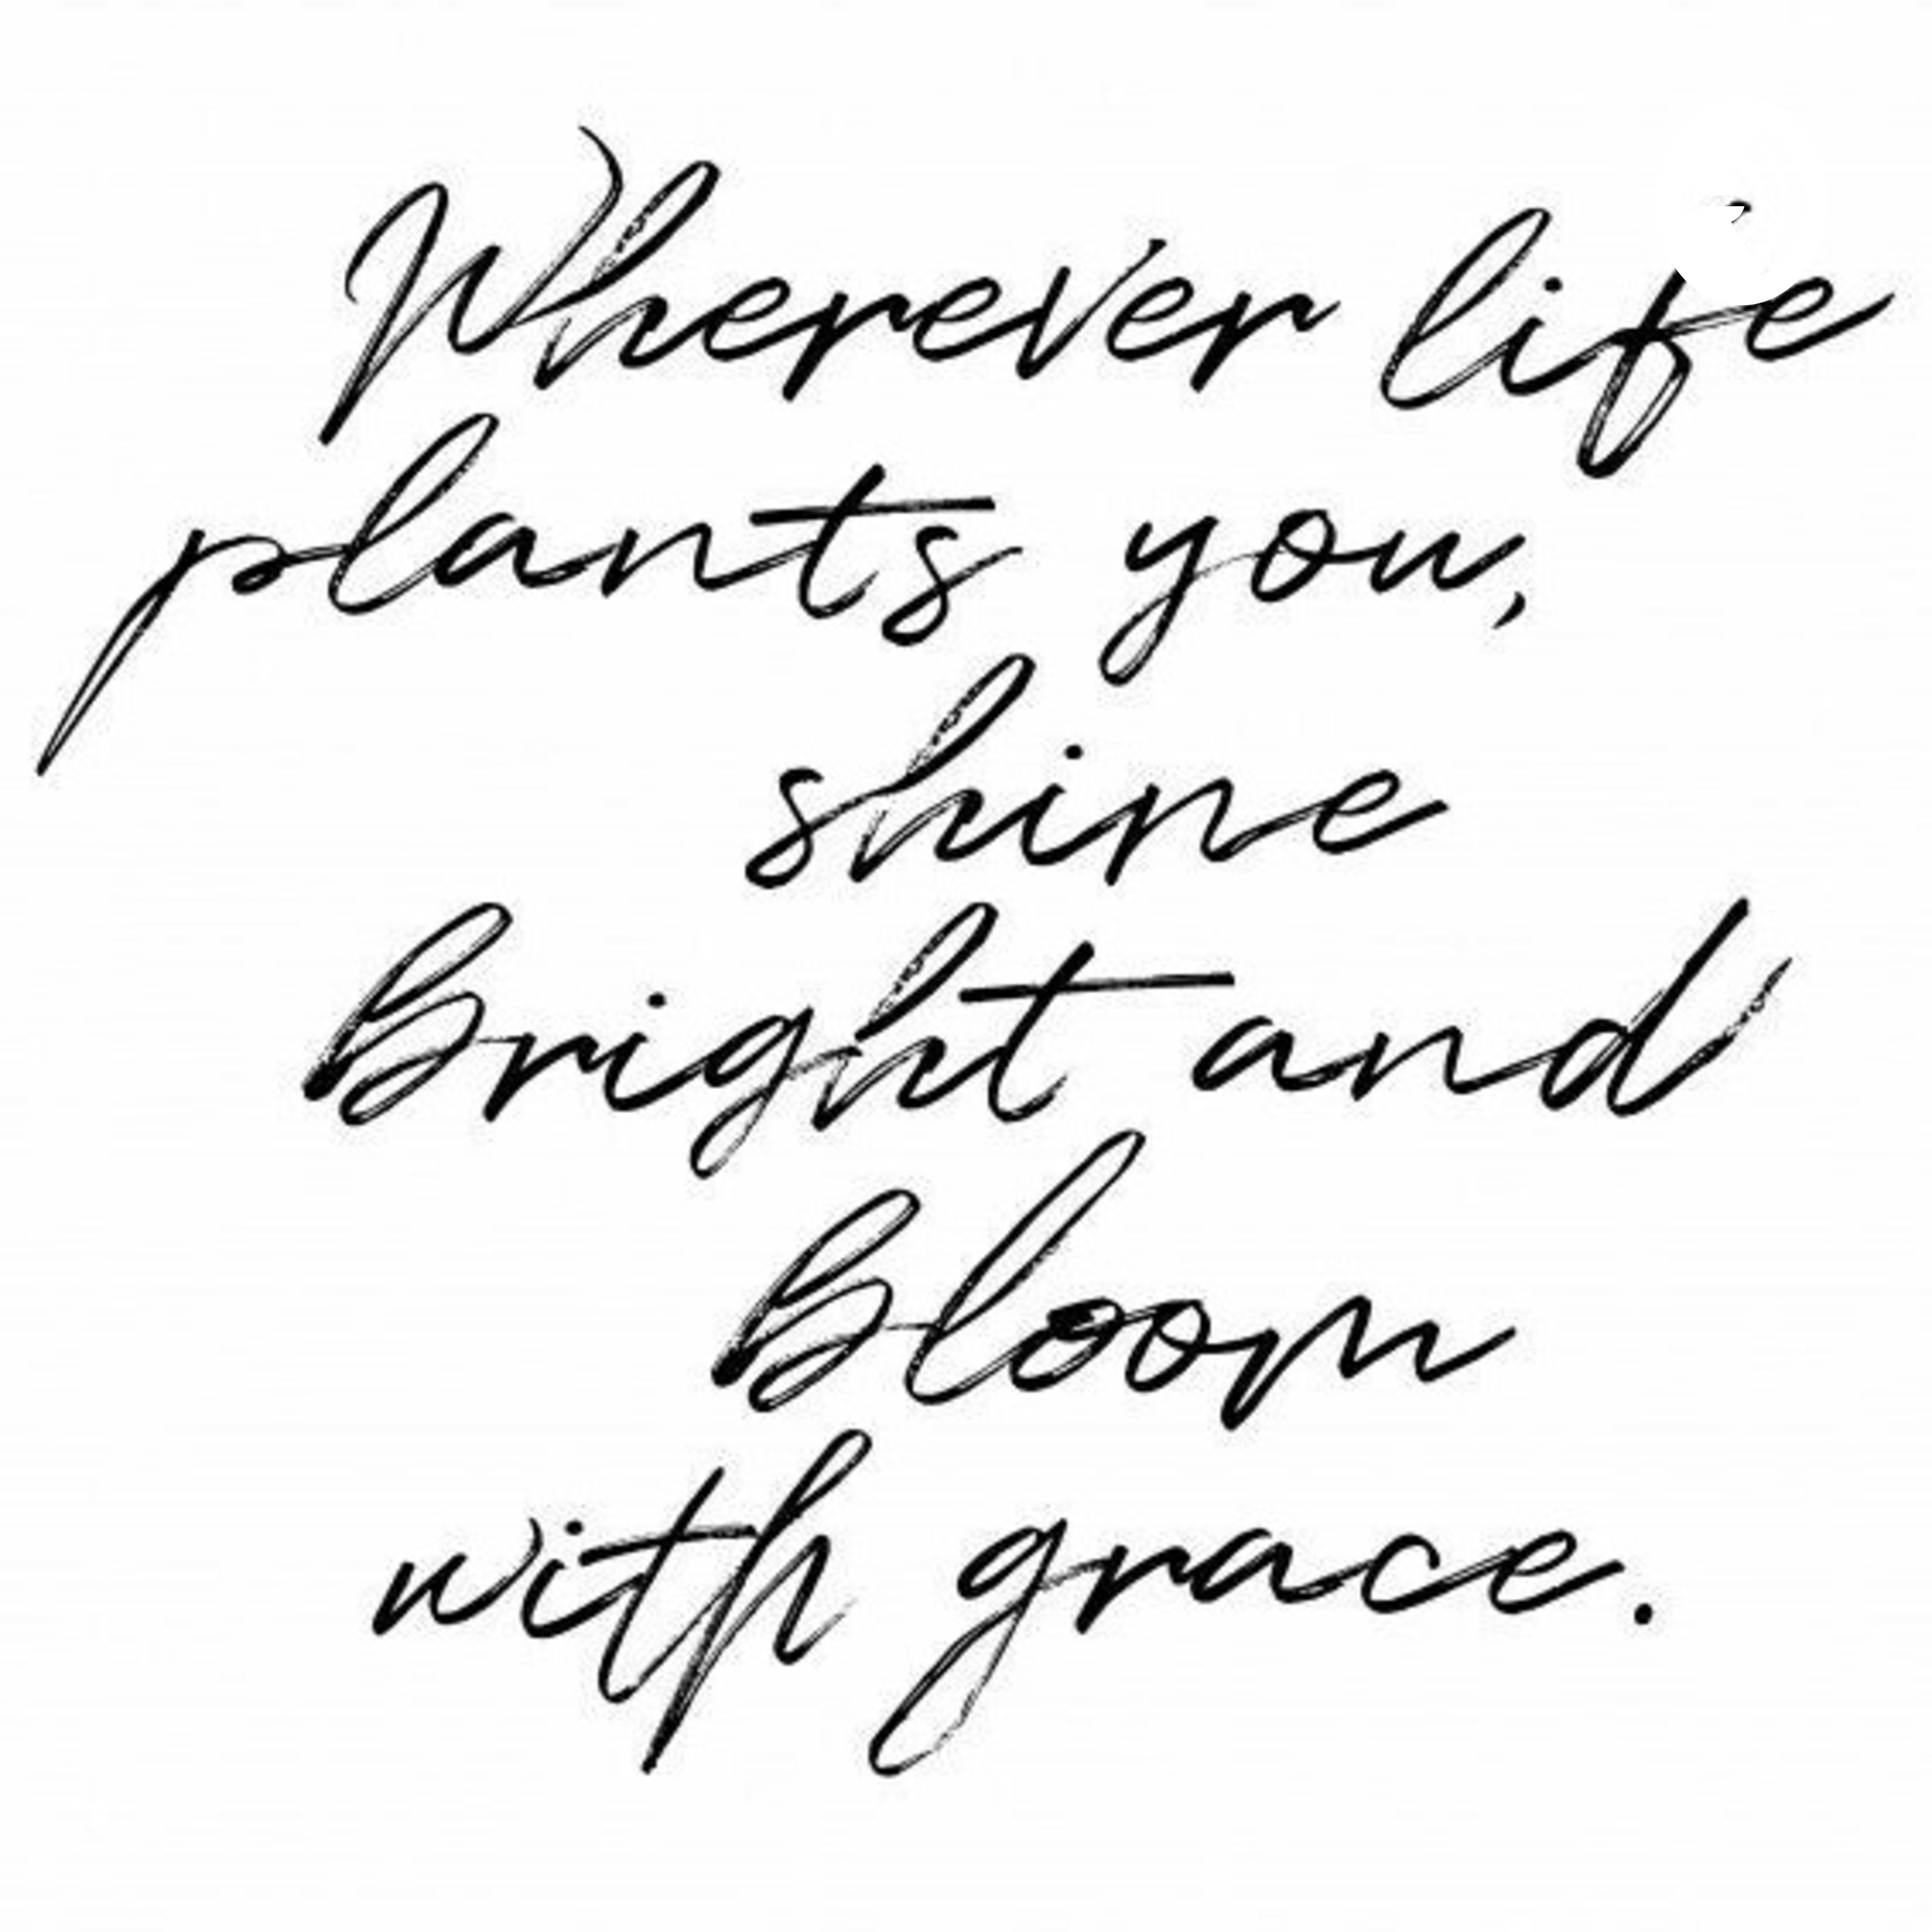 Wherever life
plants you,
shine
Bright and
Bloom
with grace.